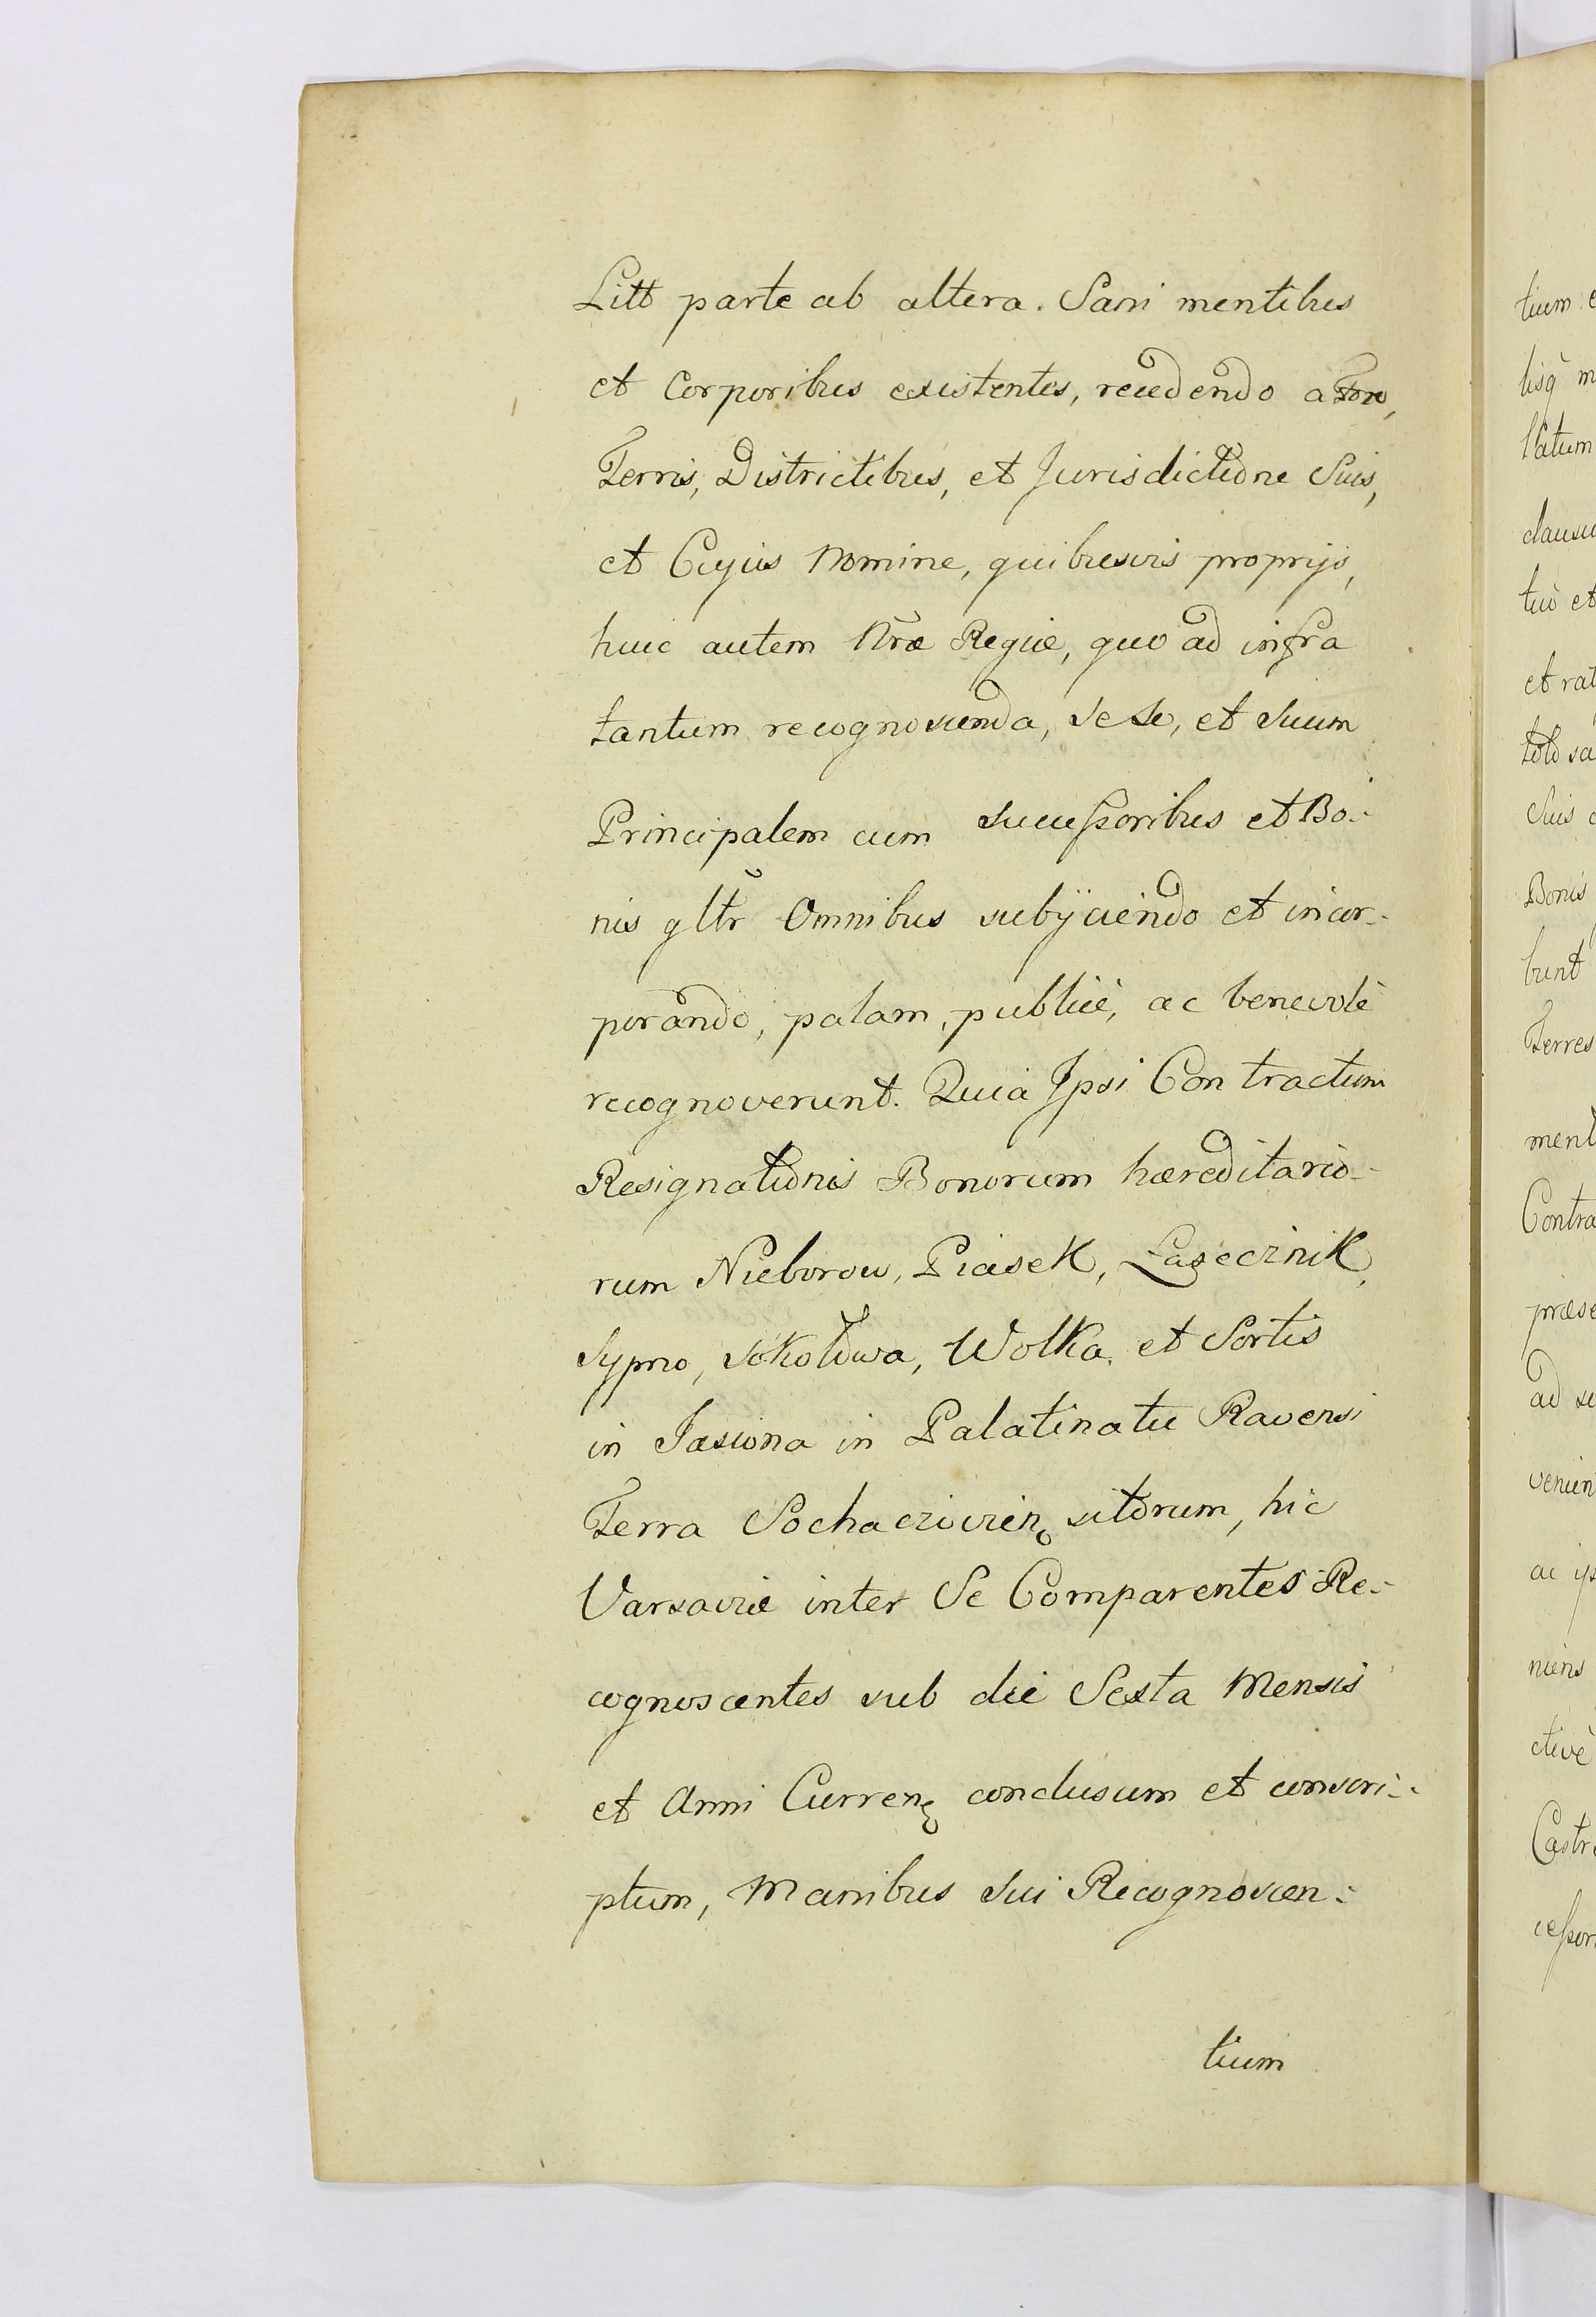 Litt parte ab altera. Sani mentibus
et Corporibus existentes, recedendo a Foro,
Terris, Districtibus, et Jurisdictione Suis,
et Cujus Nomine, quibusvis proprijs,
huic autem Nr̃æ Regiæ, quo ad infra
tantum recognoscenda, sese, et suum
Principalem cum sucessoribus et Bo-
nis gltr̃ Omnibus subijciendo et incor-
porando, palam, publicè, ac benevolè
recognoverunt. Quia Ipsi Contractum
Resignationis Bonorum hæreditario-
rum Nieborow, Piasek, Łasecznik,
Sypno, Sokołowa, Wolka, et Sortis
in Jasiona in Palatinatu Ravensi
Terra Sochaczovien sitorum, hic
Varsaviæ inter Se Comparentes Re-
cognoscentes sub die Sexta Mensis
et Anni Curren conclusum et conscri-
ptum, Manibus sui Recognoscen-
tium
tium
lisq̃
latum
tuò et
Suis
Bonis
bunt
Terres
Contra
ad
ctivè
Castr